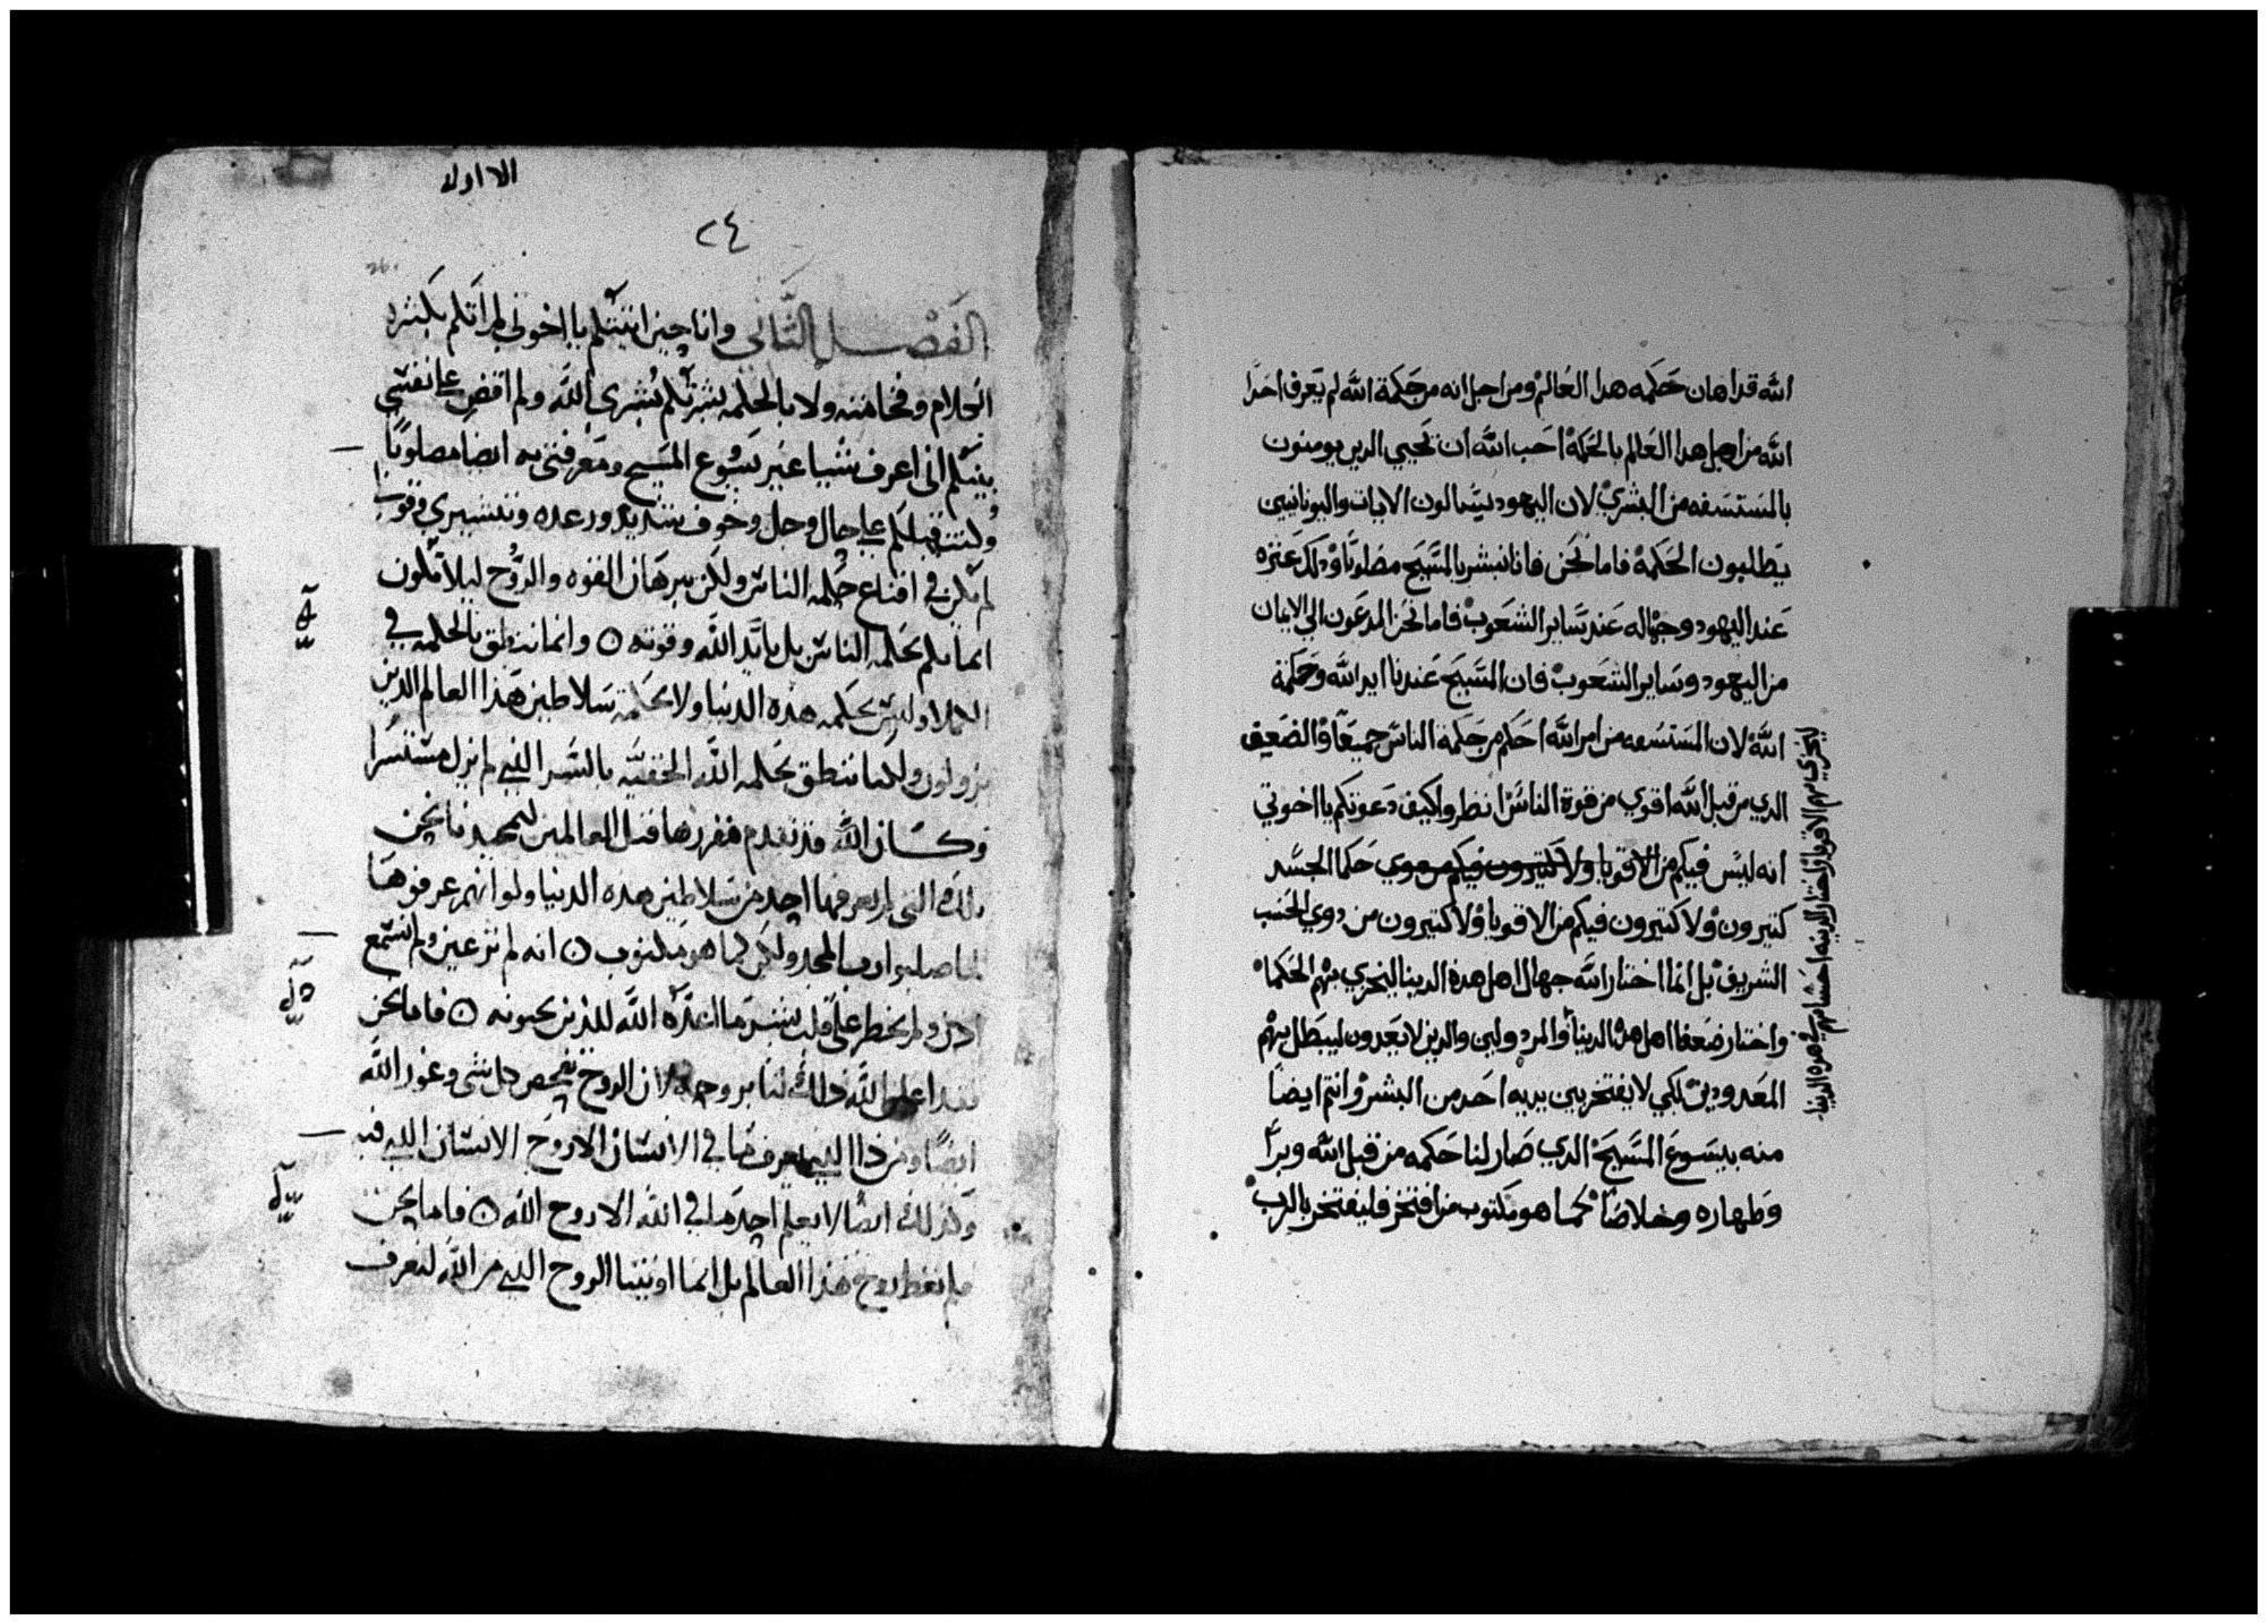 الله قد اهان حكمه هدا العالم ومن اجل انه من حكمة الله لم يعرف احدا
الله من اهل هدا العالم بالحكمة احب الله ان يحيي الدين يومنون
بالمستسفه من البشري لان اليهود يسالون الايات واليونانيين
يطلبون الحكمة فاما نحن فانا نبشر بالمسيح مصلوبا ودلك عتره
عند اليهود وجهاله عند ساير الشعوب فاما نحن المدعون الي الايمان
من اليهود وساير الشعوب فان المسيح عندنا ايد الله وحكمة
الله لان المستسفه من امر الله احكم من حكمة الناس جميعا والضعيف
الدي من قبل الله اقوي من قوة الناس انظروا كيف دعوتكم يا اخوتي
انه ليس فيكم من الاقويا ولا كتيرون فيكم من دوي حكما الجسد
كتيرون ولا كتيرون فيكم من الاقويا ولا كتيرون من دوي الحسب
الشريف بل انما اختار الله جهال اهل هده الدينا ليخزي بهم الحكما
واختار ضعفا اهل هده الدينا والمردولين والدين لا يعدون ليبطل بهم
المعدودين لكي لا يفتخر بين يديه احد من البشر وانتم ايضا
منه بيسوع المسيح الدي صار لنا حكمه من قبل الله وبرا
وطهاره وخلاصا كما هو مكتوب من افتخر فليفتخر بالرب
ليخزي بهم الاقويا واختار الدينه احسابهم في هده الدينا
الاولى
٢٤
الفصل الثاني وانا حين اتيتكم يا اخوتي لم اتكم بكثره
الكلام وفخامته ولا بالحكمه بشرتكم بشرى الله ولم اقض على نفسي
بينكم اني اعرف شيا غير يسوع المسيح ومعرفتي به ايضا مصلوبا
وكنت قبلكم على حال وجل وخوف شديد ورعده وتبشيري وقولي
لم يكن في اقناع حكمه الناس ولكن ببرهان القوه والروح ليلا يكون
ايمانكم بحكمه الناس بل بايد الله وقوته ۞ وانما ننطق بالحكمه في
الكملا وليس بحكمه هذه الدنيا ولا بحكمة سلاطين هذا العالم الذين
يزولون ولكنا ننطق بحكمه الله الخفيه بالسر الذي لم يزل مستترا
وكان الله قد تقدم ففررها قبل العالمين لتمجيدنا نحن
تلك التي لم يعرفها احد من سلاطين هذه الدنيا ولو انهم عرفوها
لما صلبوا رب المجد ولكن كما هو مكتوب ۞ انه لم تر عين ولم تسمع
اذن ولم يخطر على قلب بشر ما اعده الله للذين يحبونه ۞ فاما نحن
فقد اعلن الله ذلك لنا بروحه لان الروح تفحص كل شي وغور الله
ايضا ومن ذا الذي يعرف ما في الانسان الا روح الانسان الذي فيه
وكذلك ايضا لا يعلم احد ما في الله الا روح الله ۞ فاما نحن
فلم نعط روح هذا العالم بل انما اوتينا الروح الذي من الله لنعرف